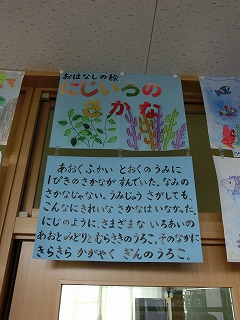 おはなしの絵
にじいろの
さかな
あおくふかい とおくのうみに
1ぴきのさかながすんでいた。なみの
さかなじゃない。うみじゅうさがしても、
こんなにきれいな さかなはいなかった
にじのように、さまざまな いろあいの
あおとみどりとむらさきのうろこ。そのなかに
きらきら かがやく ぎんのうろこ。